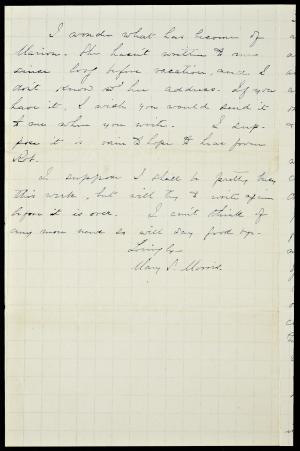 I wonder what has become of
Marion. She hasn't written to me
since long before vacation, and I
don't know her address. If you
have it, I wish you would send it
to me when you write. I sup-
pose it is vain to hope to hear from
Rob.
I suppose I shall be pretty busy
this week, but will try to write again
before it is over. I can't think of
any more news so will say good bye.
Lovingly
Mary S. Morris.